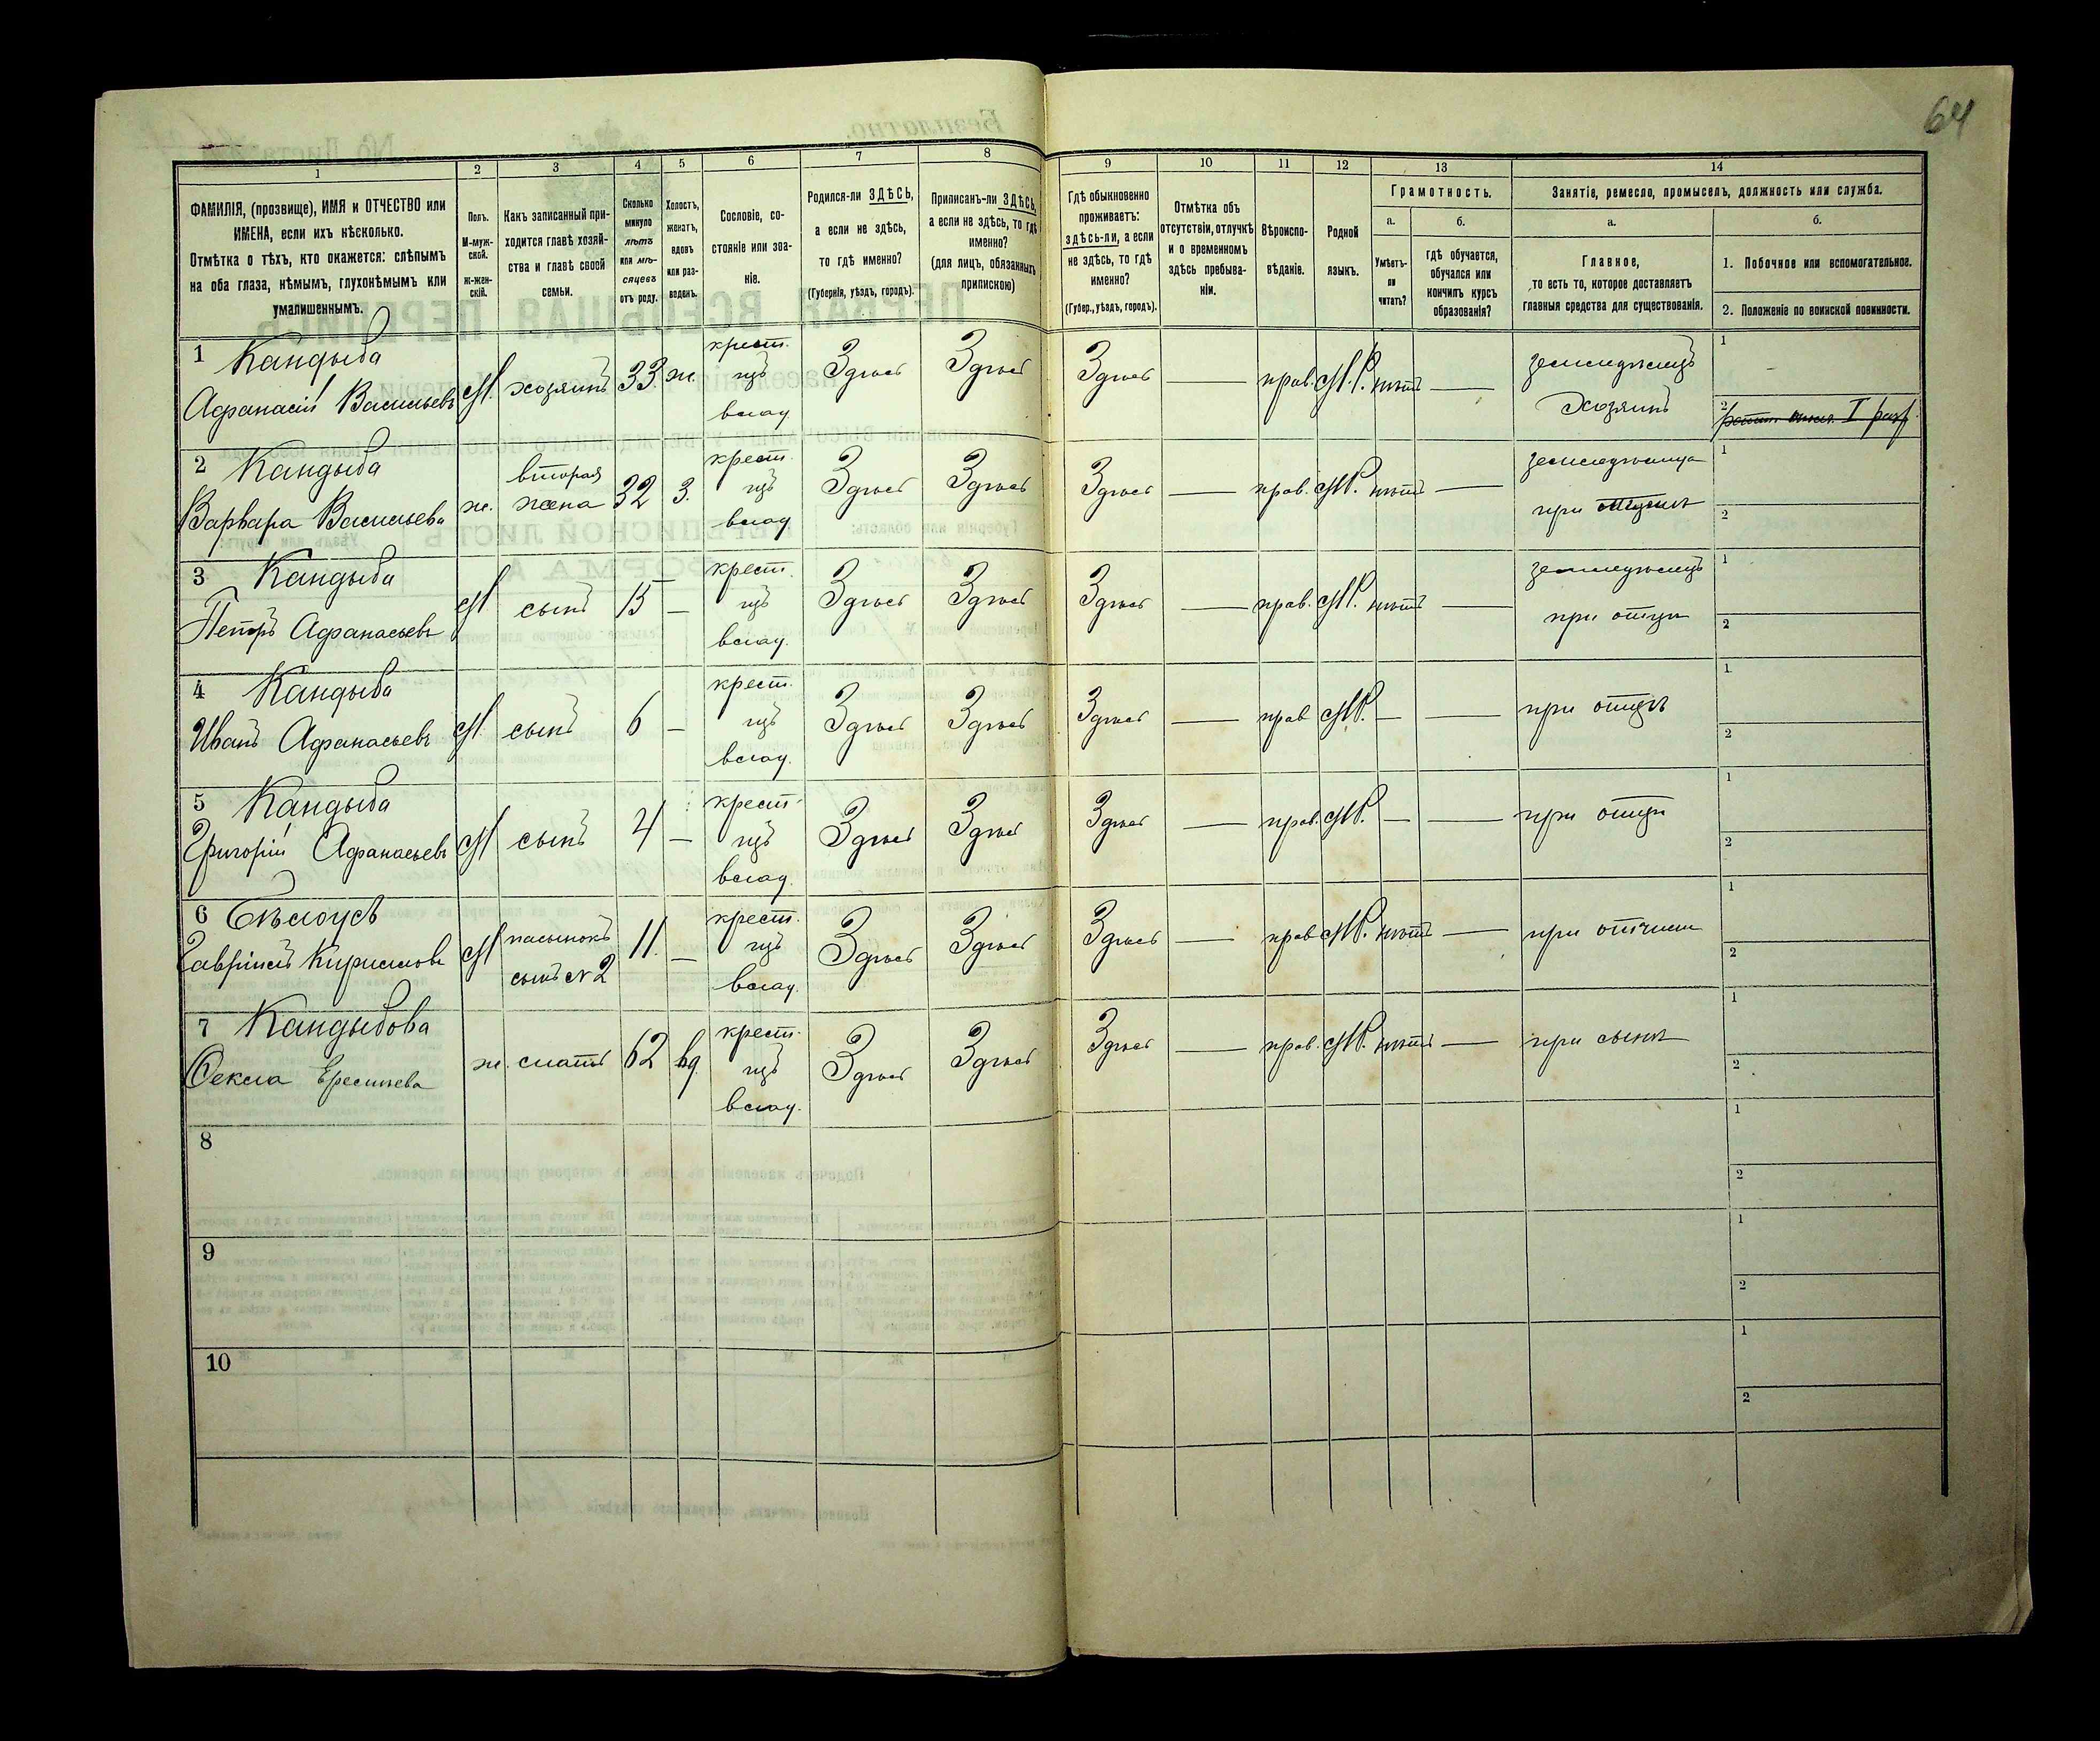 64
1 2 3 4 5 6 7 8 9 10 11 12 13 14
ФАМИЛІЯ, (прозвище), ИМЯ и ОТЧЕСТВО или
ИМЕНА, если ихъ нѣсколько.
Отмѣтка о тѣхъ, кто окажется: слѣпымъ
на оба глаза, нѣмымъ, глухонѣмымъ или
умалишеннымъ.
Полъ.
М-муж-
ской.
Ж-жен-
скій.
Какъ записанный при-
ходится главѣ хозяй-
ства и главѣ своей
семьи.
Сколько
минуло
лѣтъ
или мѣ-
сяцевъ
отъ роду.
Холостъ,
женатъ,
вдовъ
или раз-
веденъ.
Сословіе, со-
стояніе или зва-
ніе.
Родился-ли ЗДѢСЬ,
а если не здѣсь,
то гдѣ именно?
(Губернія, уѣздъ, городъ).
Приписанъ-ли ЗДѢСЬ,
а если не здѣсь, то гдѣ
именно?
(для лицъ, обязанныхъ
припискою)
Гдѣ обыкновенно
проживаетъ:
здѣсь-ли, а если
не здѣсь, то гдѣ
именно?
(Губер., уѣздъ, городъ).
Отмѣтка объ
отсутствіи, отлучкѣ
и о временномъ
здѣсь пребыва-
ніи.
Вѣроиспо-
вѣданіе.
Родной
языкъ.
Грамотность.
а.
Умѣетъ-
ли
читать?
б.
гдѣ обучается,
обучался или
кончилъ курсъ
образованія?
Занятіе, ремесло, промыселъ, должность или служба.
а.
Главное,
то есть то, которое доставляетъ
главныя средства для существованія.
б.
1. Побочное или вспомогательное.
2. Положеніе по воинской повинности.
1 Кандыба крест. земледѣлецъ 1
Афанасій Васильевъ М. хозяинъ 33. ж. изъ Здѣсь Здѣсь Здѣсь — прав. М.Р. нѣтъ — Хозяинъ
влад. 2
2 Кандыба вторая крест. земледѣлица 1
Варвара Васильева ж. жена 32 З. изъ Здѣсь Здѣсь Здѣсь — прав. МР. нѣтъ — при
влад. 2
3 Кандыба крест. земледѣлецъ 1
Петръ Афанасьевъ М сынъ 15 — изъ Здѣсь Здѣсь Здѣсь — прав. МР. нѣтъ — при отцѣ
влад. 2
4 Кандыба крест. 1
Иванъ Афанасьевъ М. сынъ 6 — изъ Здѣсь Здѣсь Здѣсь — прав МР. — — при отцѣ
влад. 2
5 Кандыба крест. 1
Григорій Афанасьевъ М сынъ 4 — изъ Здѣсь Здѣсь Здѣсь — прав. МР. — — при отцѣ
влад. 2
6 Бѣлоусъ пасынокъ крест. 1
Гавріилъ Кириловъ М сынъ №2 11. — изъ Здѣсь Здѣсь Здѣсь — прав МР. нѣтъ — при отчимѣ
влад. 2
7 Кандыбова крест. 1
Ѳекла ж. мать 62 вд. изъ Здѣсь Здѣсь Здѣсь — прав. МР. нѣтъ — при сынѣ
влад. 2
8 1
2
9 1
2
10 1
2